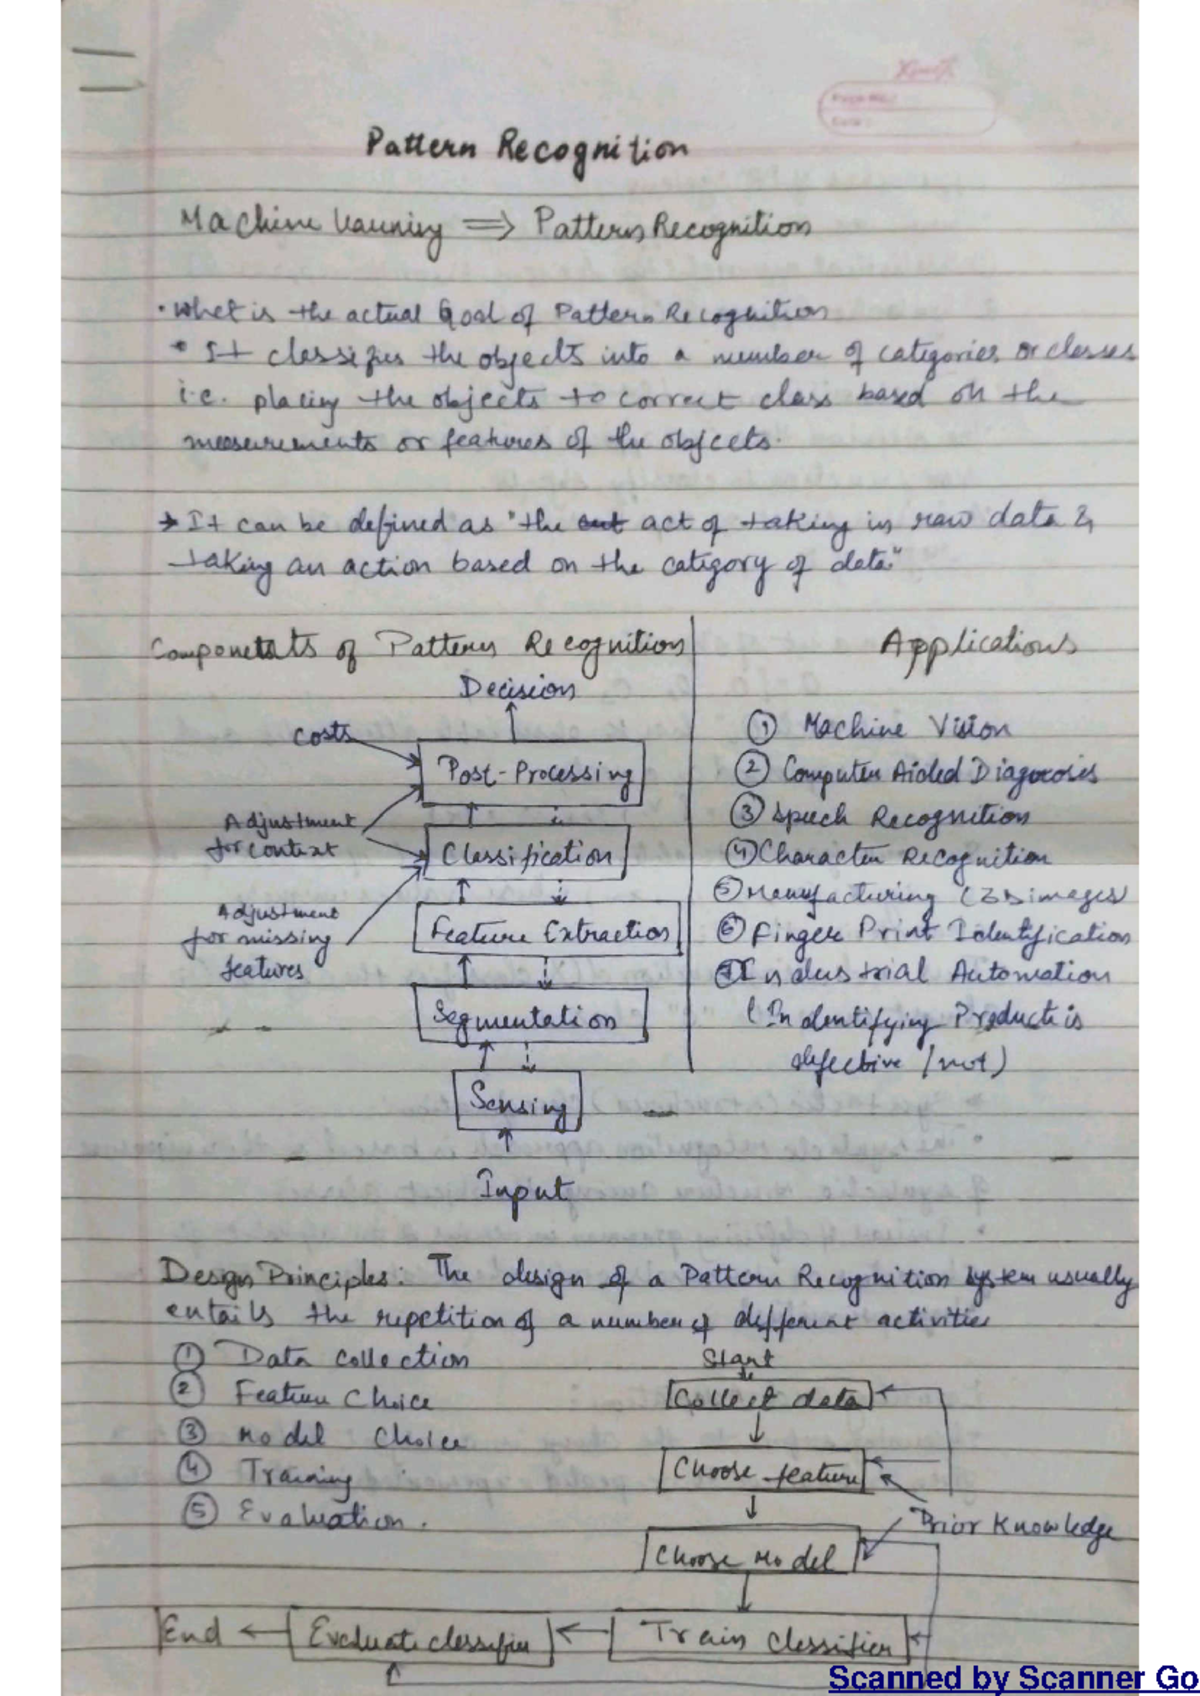 Pattern Recognition
Machine Learning ⇒ Pattern Recognition
• What is the actual Goal of Pattern Recognition
• It classifies the objects into a number of categories or classes
i.e. placing the objects to correct class based on the
measurements or features of the objects.
→ It can be defined as "the out act of taking in raw data &
taking an action based on the category of data"
Components of Pattern Recognition
Decision
Costs
Post-Processing
Adjustment
for context
Classification
Adjustment
for missing
features
Feature Extraction
Segmentation
Sensing
Input
Applications
① Machine Vision
② Computer Aided Diagnosis
③ Speech Recognition
④ Character Recognition
⑤ Manufacturing (3D images)
⑥ Finger Print Identification
⑦ Industrial Automation
(Indentifying Product is
defective / not)
Design Principles: The design of a Pattern Recognition system usually
entails the repetition of a number of different activities
① Data collection
② Feature Choice
③ Model Choice
④ Training
⑤ Evaluation.
Start
Collect data
Choose feature
Prior Knowledge
Choose Model
Train Classifier
Evaluate classifier
End
Scanned by Scanner Go